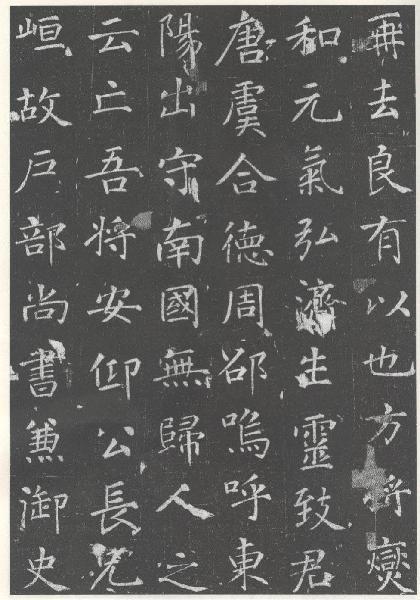 再去良有以也方將燮
和元氣弘濟生靈致君
唐虞合德周邵嗚呼東
陽出守南國無歸人之
云亡吾將安仰公長兄
峘故戶部尚書兼御史